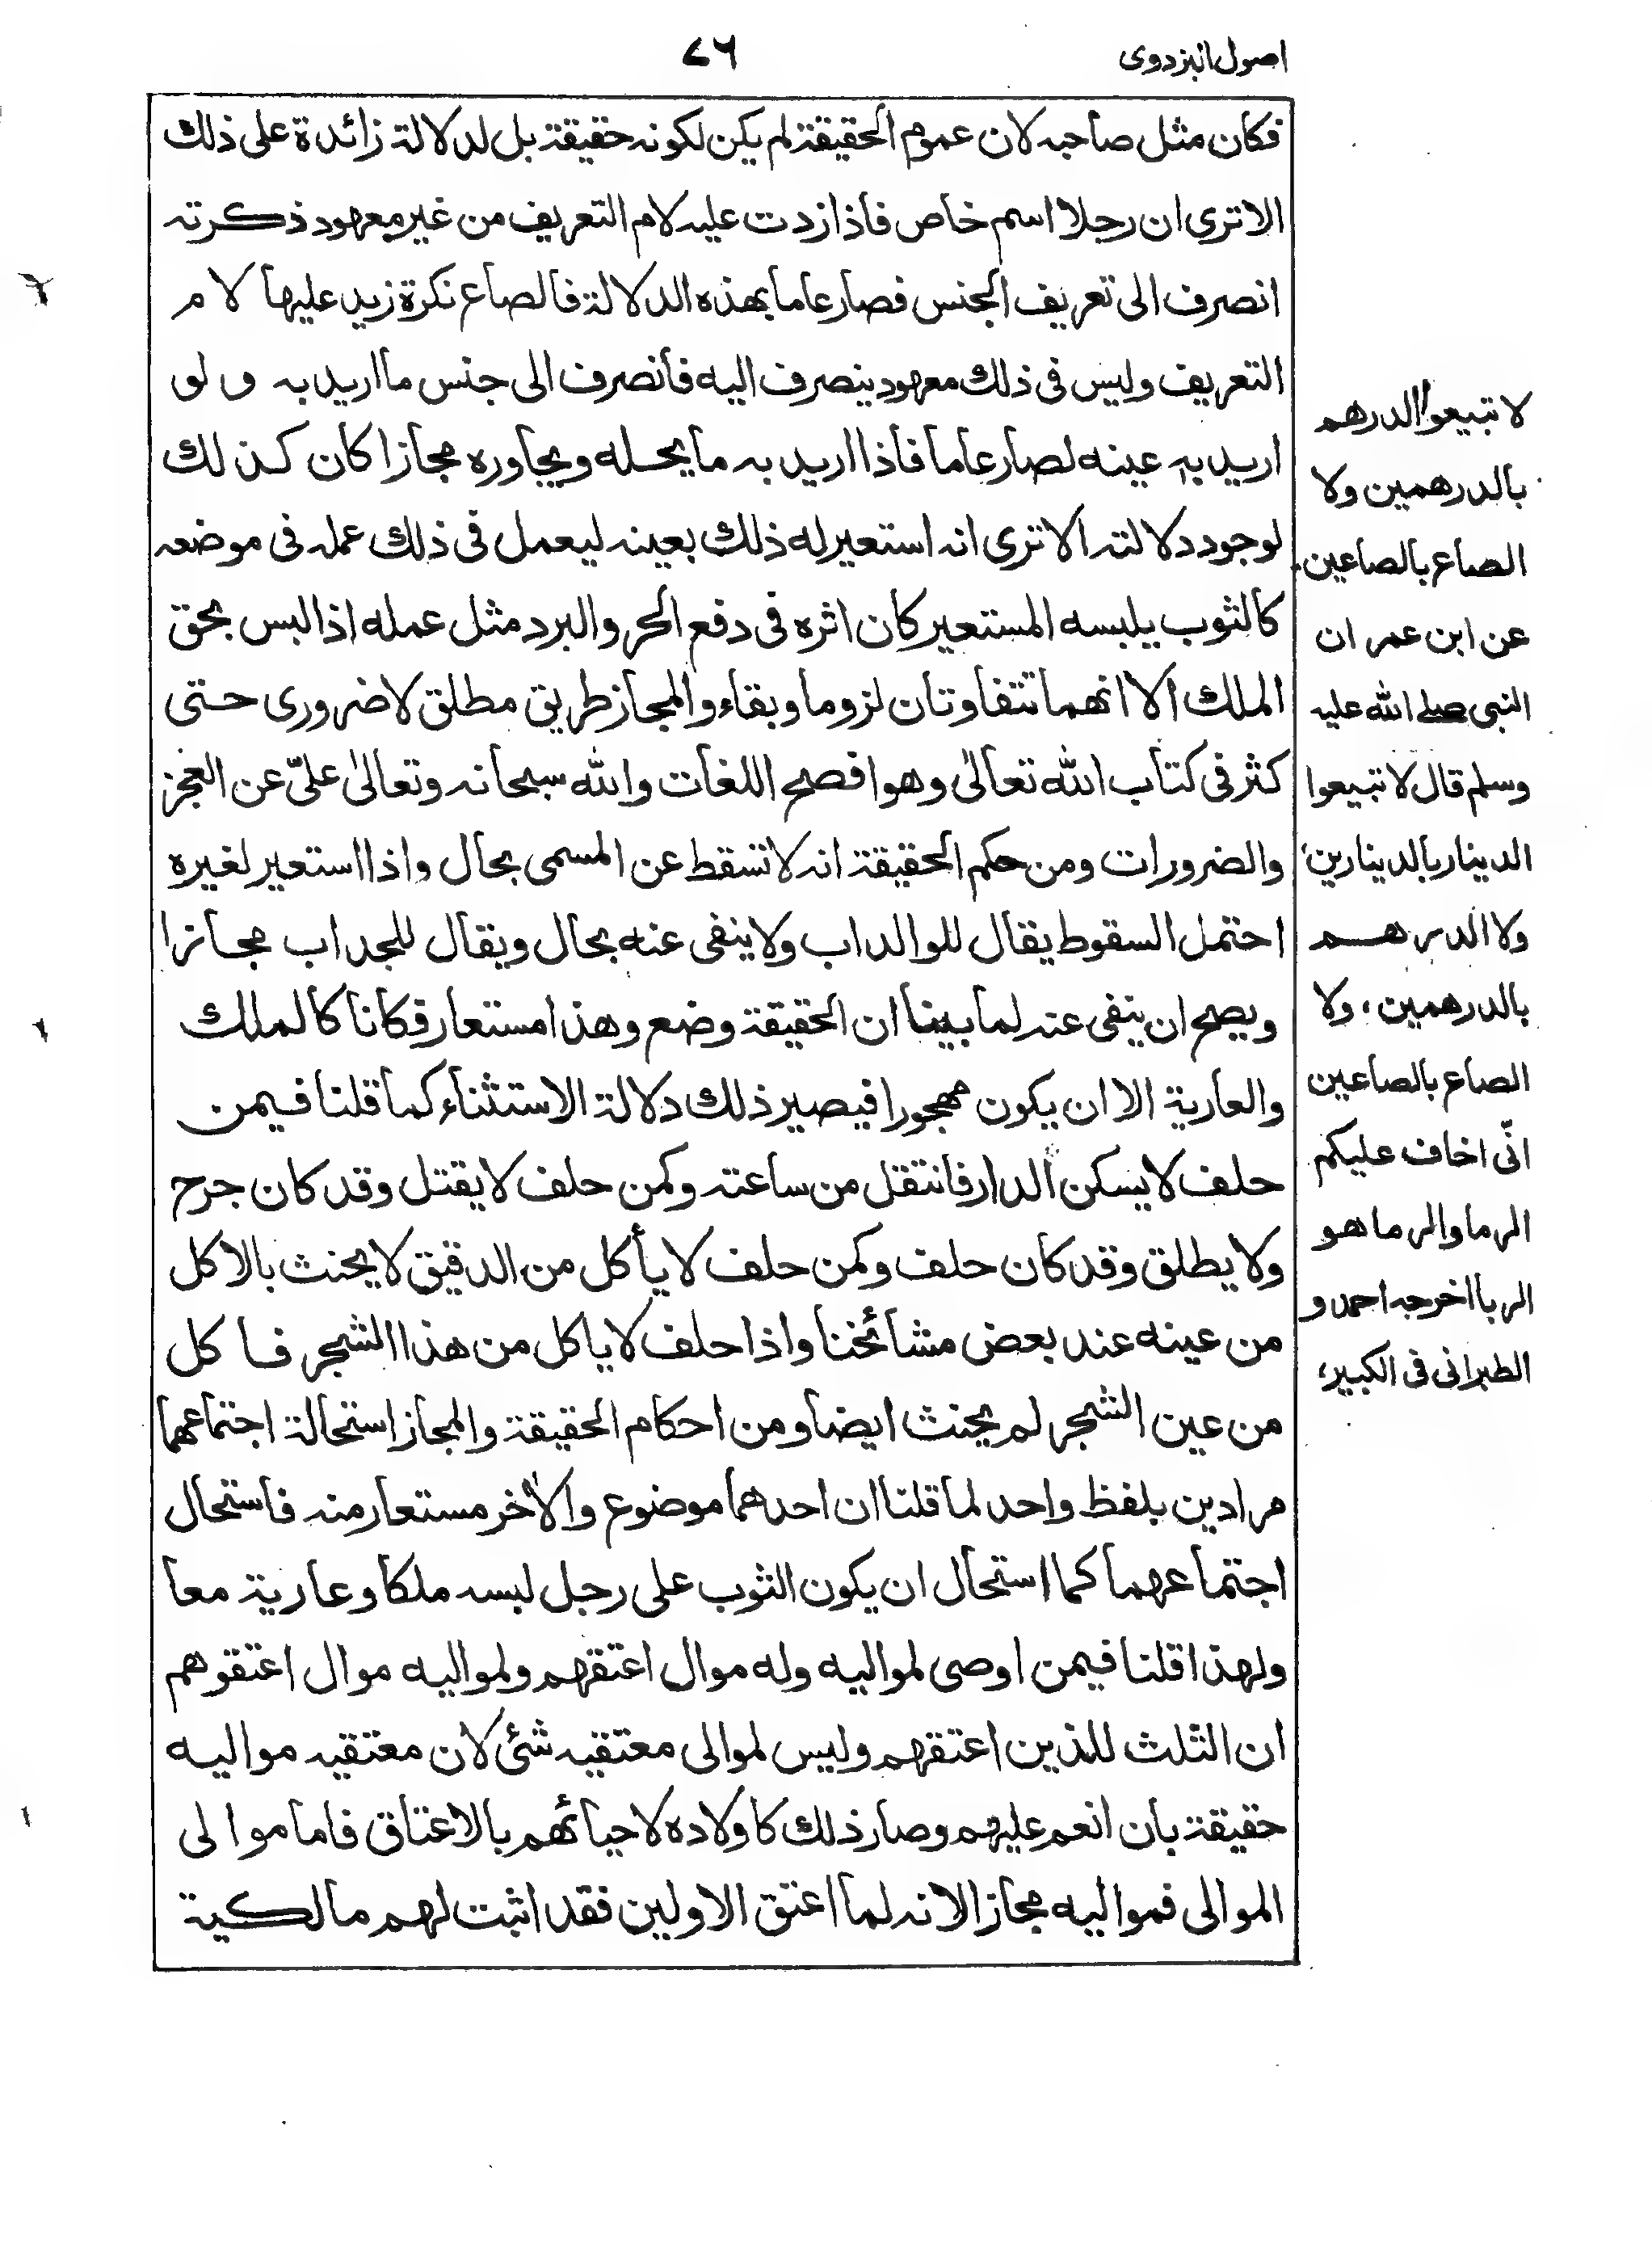 اصول البزدوى
٧٦
فكان مثل صاحبه لان عموم الحقيقة لم يكن لكونه حقيقة بل لدلالة زائدة على ذلك
الا ترى ان رجلا اسم خاص فاذا زدت عليه لام التعريف من غير معهود ذكرته
انصرف الى تعريف الجنس فصار عاما بهذه الدلالة فالصاع نكرة زيد عليها لام
التعريف وليس فى ذلك معهود ينصرف اليه فانصرف الى جنس ما اريد به ولو
اريد به عينه لصار عاما فاذا اريد به ما يحله ويجاوره مجازا كان كذلك
لوجود دلالته الا ترى انه استعير له ذلك بعينه ليعمل فى ذلك عمله فى موضعه
كالثوب يلبسه المستعير كان اثره فى دفع الحر والبرد مثل عمله اذا لبس بحق
الملك الا انهما تتفاوتان لزوما وبقاء والمجاز طريق مطلق لا ضرورى حتى
كثر فى كتاب الله تعالىٰ وهو افصح اللغات والله سبحانه وتعالىٰ علىّ عن العجز
والضرورات ومن حكم الحقيقة انه لا تسقط عن المسمى بحال واذا استعير لغيره
احتمل السقوط يقال للوالد اب ولا ينفى عنه بحال ويقال للجد اب مجازا
ويصح ان ينفى عنه لما بينا ان الحقيقة وضع وهذا مستعار فكانا كالملك
والعارية الا ان يكون مهجورا فيصير ذلك دلالة الاستثناء كما قلنا فيمن
حلف لا يسكن الدار فانتقل من ساعته وكمن حلف لا يقتل وقد كان جرح
ولا يطلق وقد كان حلف وكمن حلف لا يأكل من الدقيق لا يحنث بالاكل
من عينه عند بعض مشائخنا واذا حلف لا ياكل من هذا الشجر فاكل
من عين الشجر لم يحنث ايضا ومن احكام الحقيقة والمجاز استحالة اجتماعهما
مرادين بلفظ واحد لما قلنا ان احدهما موضوع والاٰخر مستعار منه فاستحال
اجتماعهما كما استحال ان يكون الثوب على رجل لبسه ملكا وعارية معا
ولهذا قلنا فيمن اوصى لمواليه وله موال اعتقهم ولمواليه موال اعتقوهم
ان الثلث للذين اعتقهم وليس لموالى معتقيه شئ لان معتقيه مواليه
حقيقة بان انعم عليهم وصار ذلك كاولاده لاحيائهم بالاعتاق فاما موالى
الموالى فمواليه مجازا لانه لما اعتق الاولين فقد اثبت لهم مالكية
لا تبيعوا الدرهم
بالدرهمين ولا
الصاع بالصاعين.
عن ابن عمر ان
النبى صلى الله عليه
وسلم قال لا تبيعوا
الدينار بالدينارين،
ولا الدرهم
بالدرهمين، ولا
الصاع بالصاعين
انّى اخاف عليكم
الرما والرما هو
الربا اخرجه احمد و
الطبرانى فى الكبير،